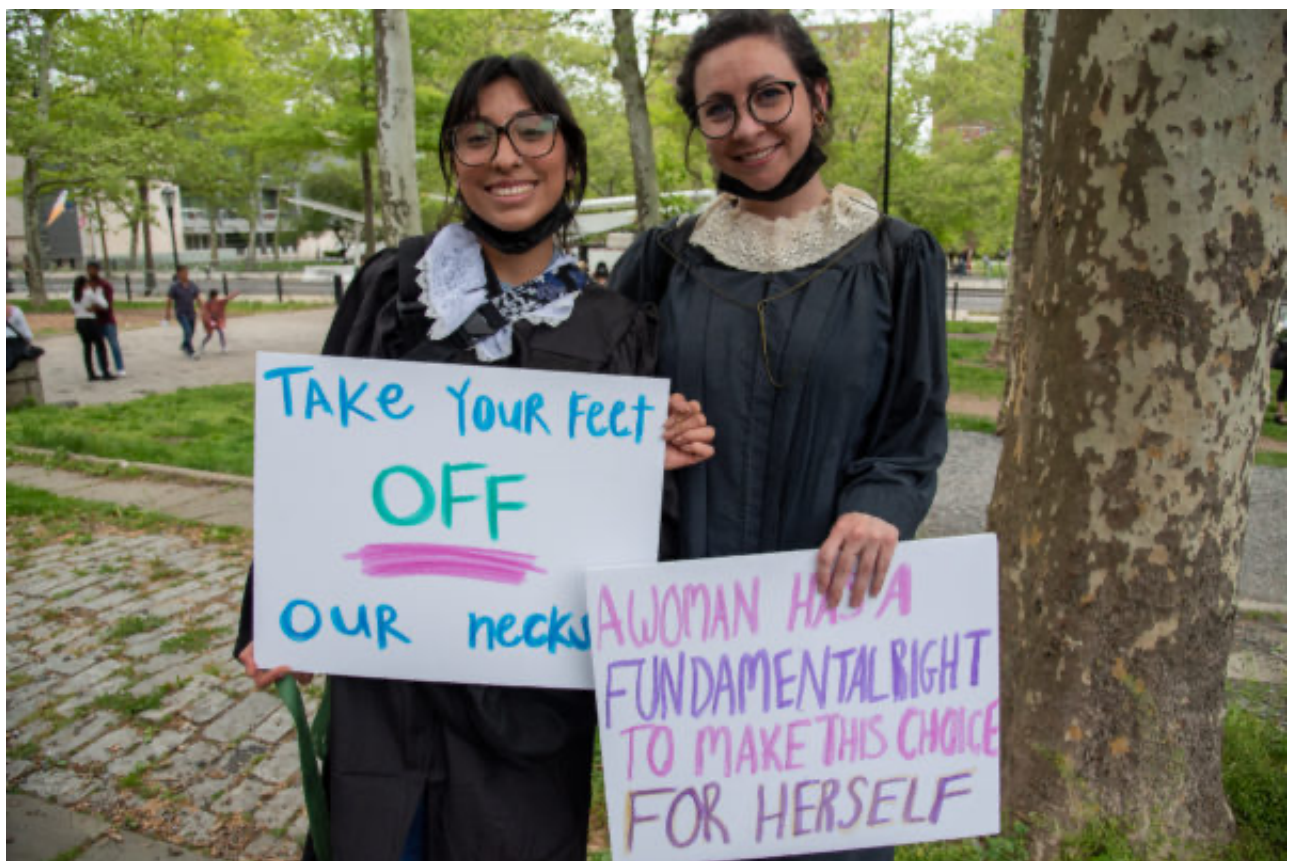 TAKe YOUR Feet
OFF
OUR necks
A WOMAN HAS A
FUNDAMENTAL RIGHT
TO MAKE THIS CHOICE
FOR HERSELF